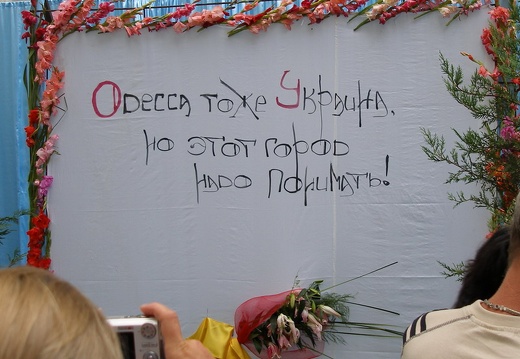 Одесса тоже Украина,
но этот город
надо понимать!